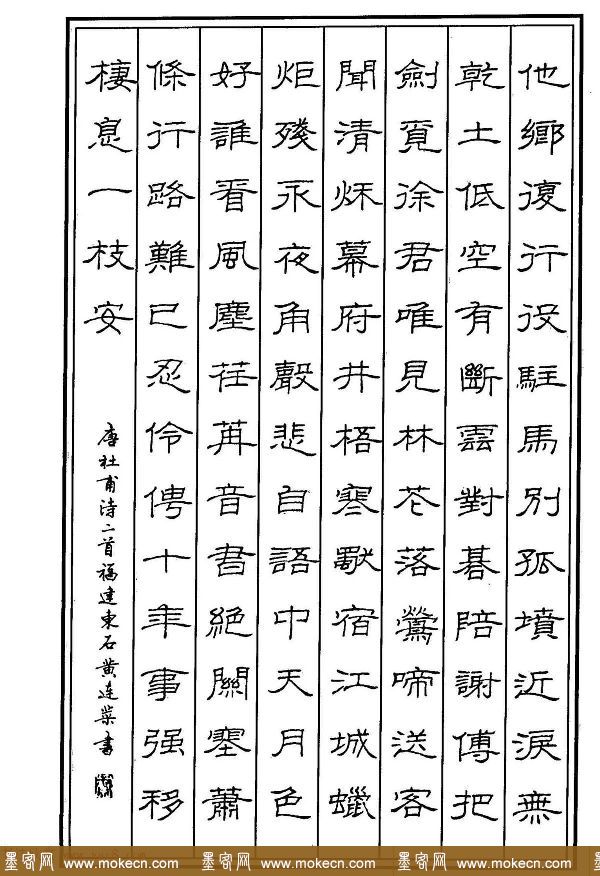 他鄉復行役駐馬別孤墳近淚無
乾土低空有斷雲對碁陪謝傅把
劍覓徐君唯見林花落鶯啼送客
聞清秌幕府井梧寒獨宿江城蠟
炬殘永夜角聲悲自語中天月色
好誰看風塵荏苒音書絕關塞蕭
條行路難已忍伶俜十年事强移
棲息一枝安
唐杜甫詩二首福建東石黃连榮書
墨客网 www.mokecn.com 墨客网 www.mokecn.com 墨客网 www.mokecn.com